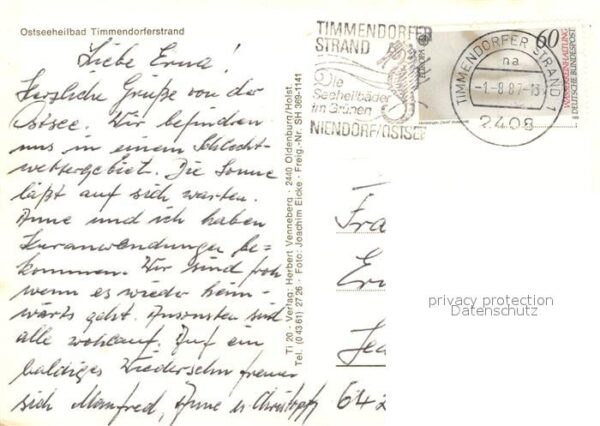 Ostseeheilbad Timmendorferstrand
Liebe Erna!
Herzliche Grüße von der
Ostsee. Wir befinden
uns in einem Schlecht-
wettergebiet. Die Sonne
läßt auf sich warten.
Anne und ich haben
Kuranwendungen be-
kommen. Wir sind froh
wenn es wieder heim-
wärts geht. Ansonsten sind
alle wohlauf. Auf ein
baldiges Wiedersehn freuen
sich Manfred, Anne u. Christoph
Ti 20 - Verlag: Herbert Venneberg - 2440 Oldenburg/Holst.
Tel. (0 43 61) 27 26 - Foto: Joachim Eicke - Freig.-Nr. SH 369-1141
TIMMENDORFER
STRAND
Die
Seeheilbäder
im Grünen
NIENDORF/OSTSEE
EUROPA
60
NATURERHALTUNG
DEUTSCHE BUNDESPOST
TIMMENDORFER STRAND 1
na
-1-8.87-13
2408
Fra
Er
Je
642
privacy protection
Datenschutz